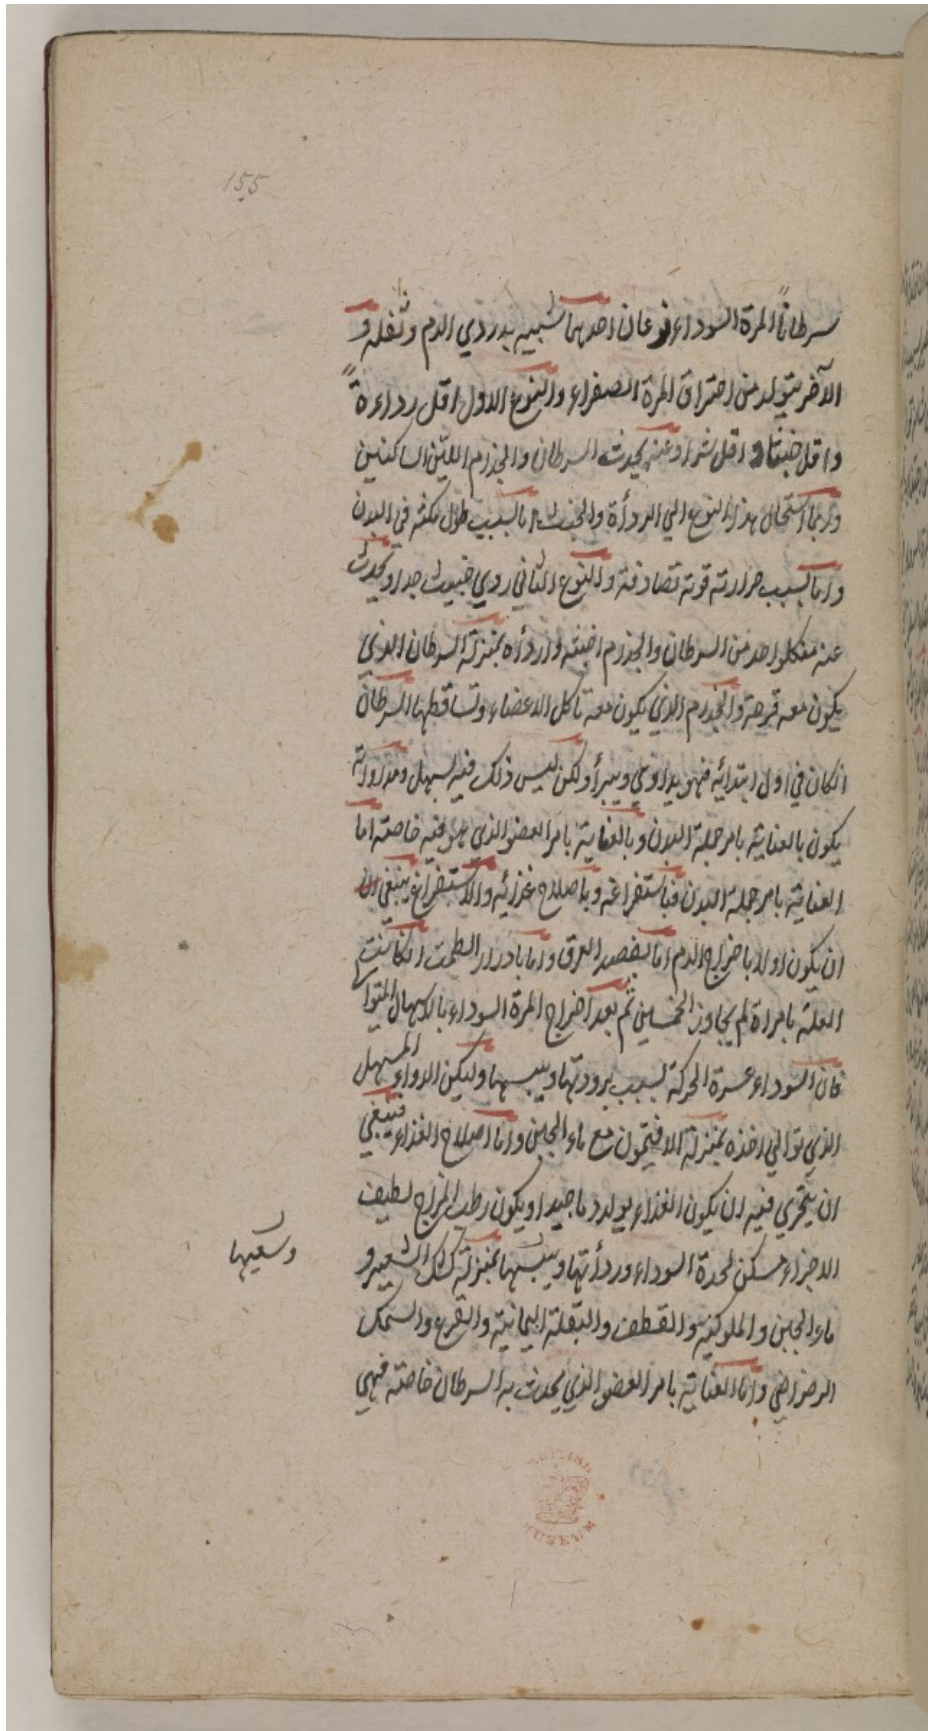 155
سرطاناً المرة السوداء نوعان احدهما شبيه بدردي الدم وثفله و
الآخر يتولد من احتراق المرة الصفراء والنوع الاول اقل رداءةً
واقل خبثا واقل شرا وعنه يحدث السرطان والجذام اللذين الساكنين
وربما استحال هذا النوع الي الردأة والخبث اما لسبب طول مكثه في البدن
واما لسبب حرارته قوته تصادفه والنوع الثاني ردي خبيث جدا ويحدث
عنه من كلواحد من السرطان والجذام اخبثه واردأه بمنزلة السرطان الذي
يكون معه قرحة والجذام الذي يكون معه تاكل الاعضاء وتساقطها السرطان
انكان في اول ابتدائه فهو يداوي ويبرأ ولكن ليس ذلك فيه لسهل ومداواته
يكون بالعناية بامر جملة البدن وبالعناية بامر العضو الذي هو فيه خاصته اما
العناية بامر جملة البدن فباستفراغه وباصلاح غذائه والاستفراغ ينبغي ان
ان يكون اولا باخراج الدم اما لفصد العرق واما بادرار الطمث انكانت
العلة بامراة لم يجاوز الخمسين ثم بعد اخراج المرة السوداء بالاسهال المتواتر
فان السوداء عسرة الحركة لسبب برودتها ويبسها وليكن الدواء المسهل
الذي توالي اخذه بمنزلة الافتيمون مع ماء الجبن واما اصلاح الغذاء فينبغي
ان يتحري فيه ان يكون الغذاء يولد دما جيدا ويكون رطب المزاج لطيف
الاجزاء مسكن لحدة السوداء وردأتها ويبسها بمنزلة كشك الشعير و
ماء الجبن والملوكية والقطف والبقلة اليمانية والقرع والسمك
الرضراضي واما العناية بامر العضو الذي يحدث به السرطان خاصته فهي
وسعيها
BRITISH MUSEUM